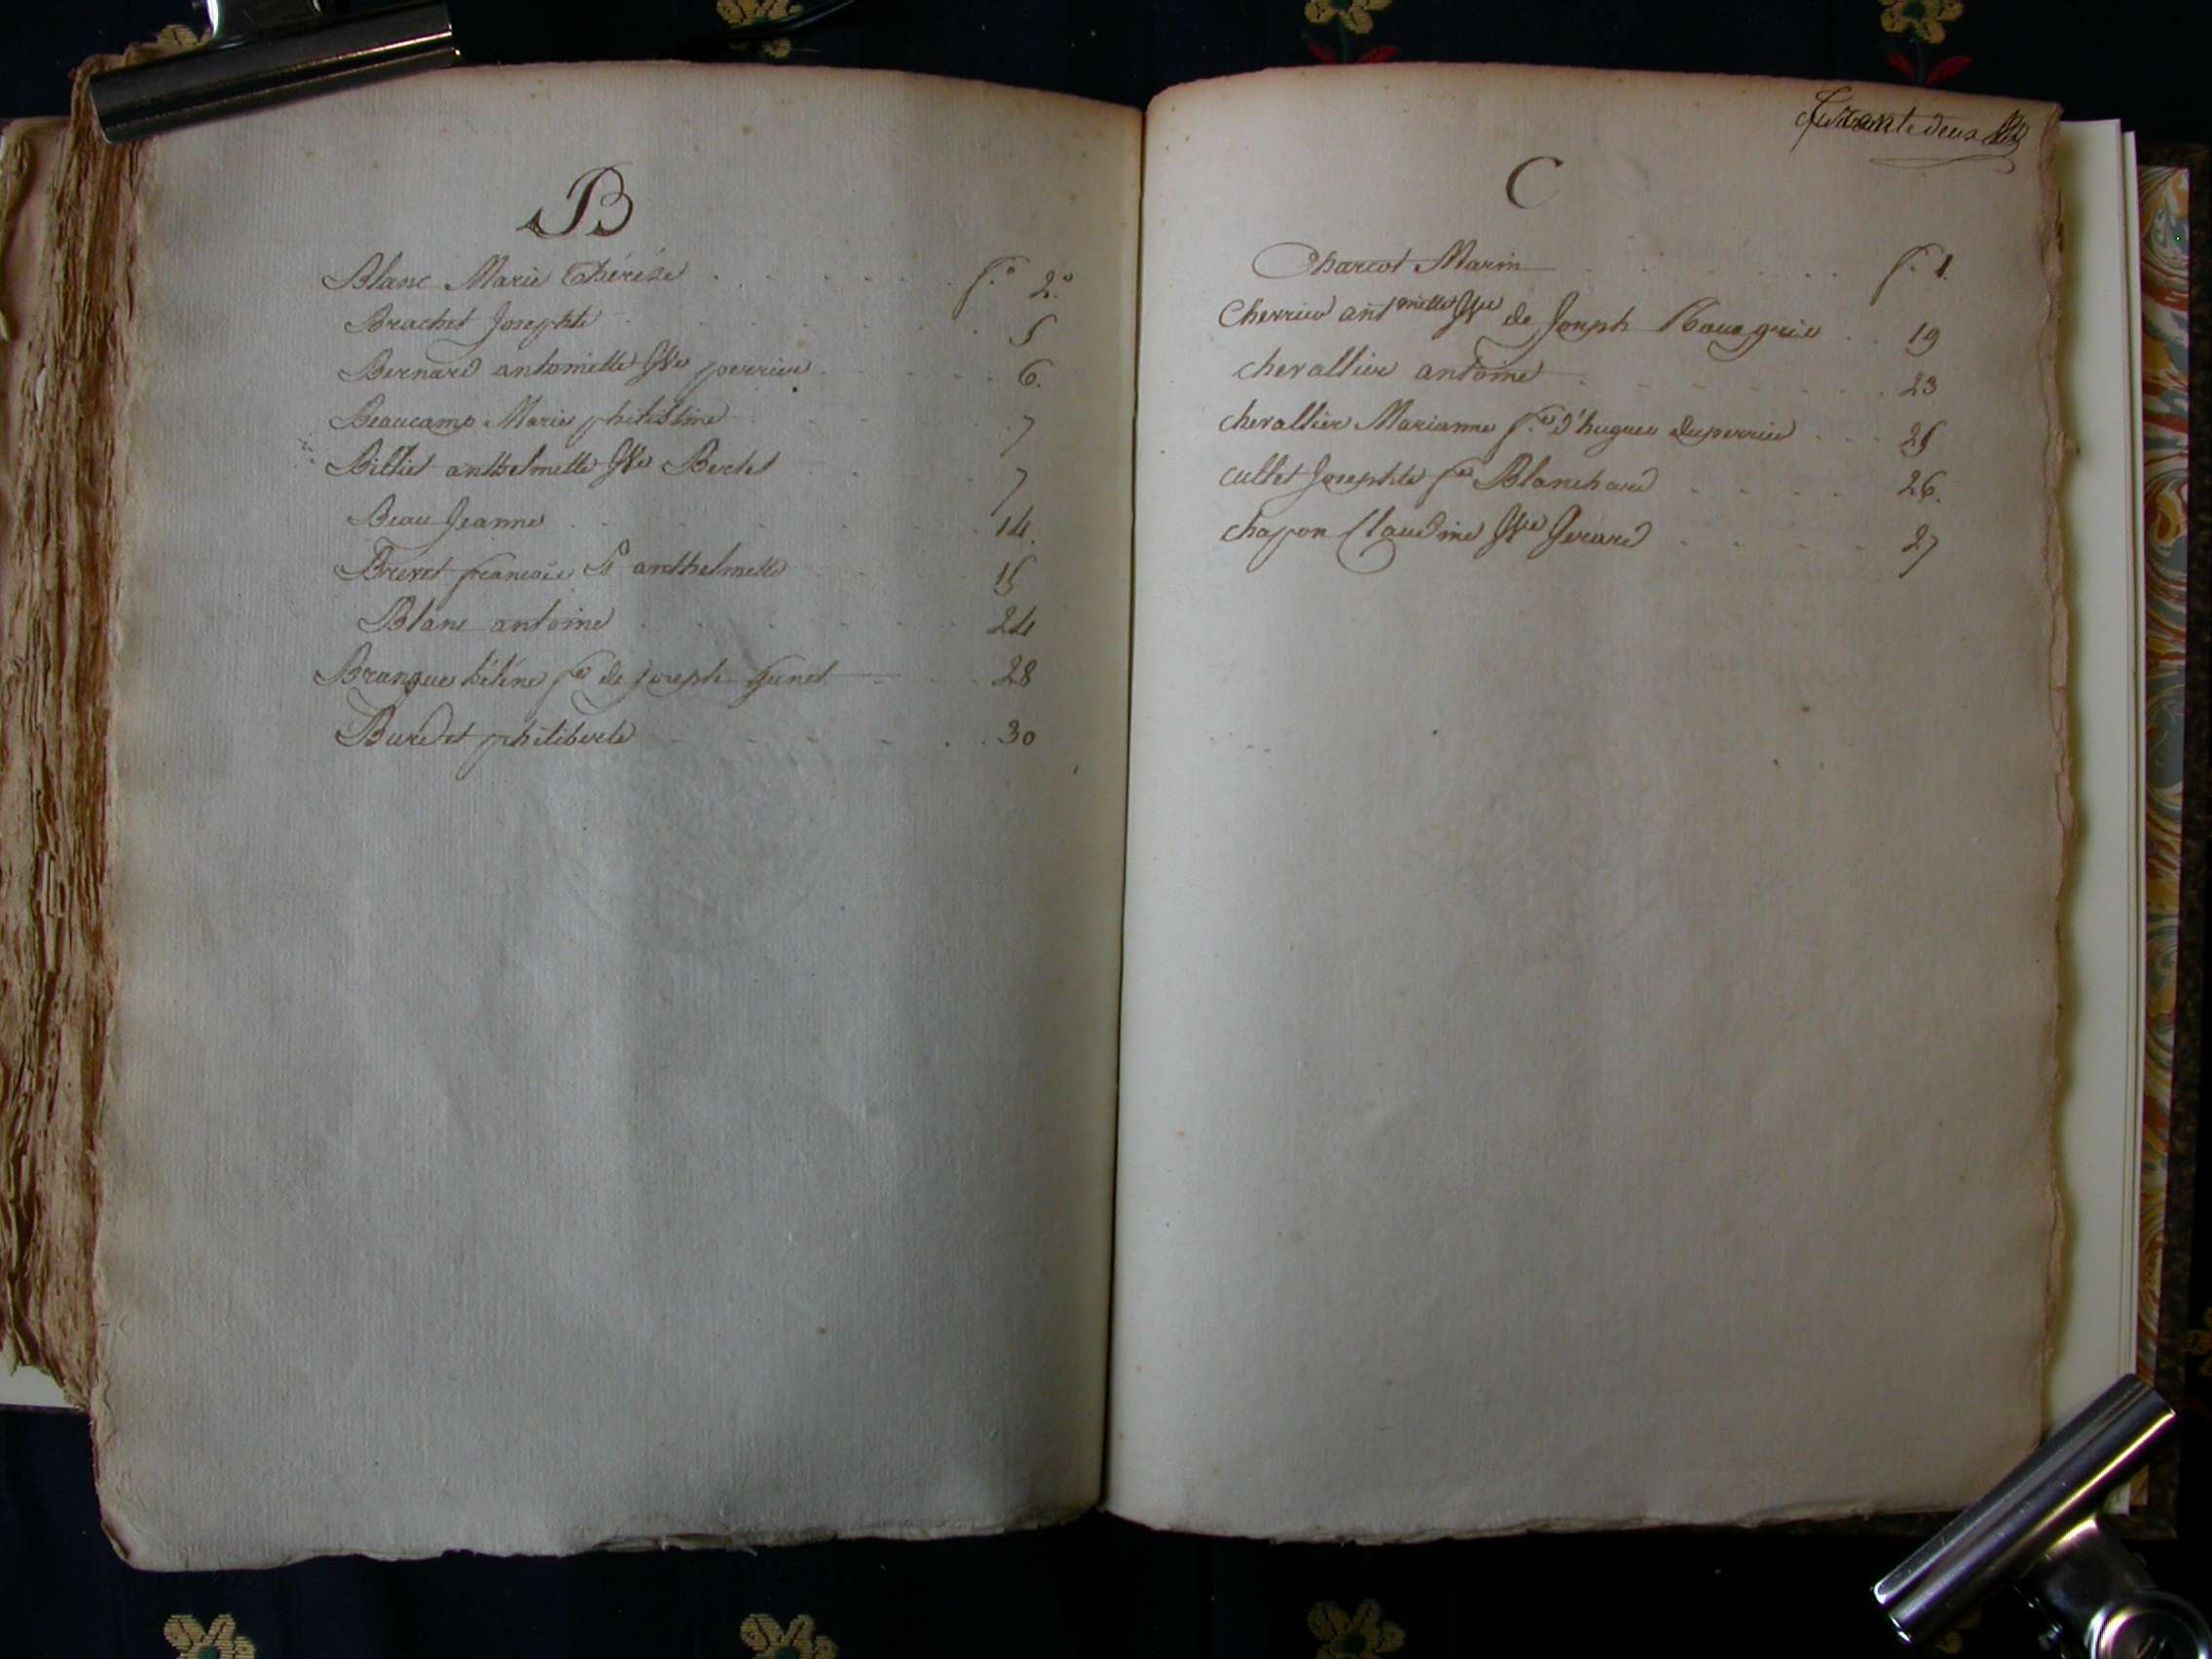 B
Blanc Marie Thérése . . . . . f.o 2.o
Brachet Josephte . . . . . 5
Bernard antoinette Vve perrier . . . . 6.
Beaucamp Marie philibine . . . . 7
Billiet anthelmette Vve Bertet . . . 7
Beau Jeanne . . . . . 14.
Brevet francoise anthelmette . . . 15
Blanc antoine . . . . . 24
Brangue héléne fe de joseph - 28
Burdet philiberte - - - - . . 30
soixante deux
C
Charcot Marin . . . . . . f.o 1.
Cherrier antoinette Vve de Joseph . . 19
chevallier antoine . - - - - . . 23
chevallier Marianne f.e d'hugues duperrier . - - - 25
cullet Josephte fe Blanchard - - - - 26.
chapon Claudine Vve Gerard - - - - - 27